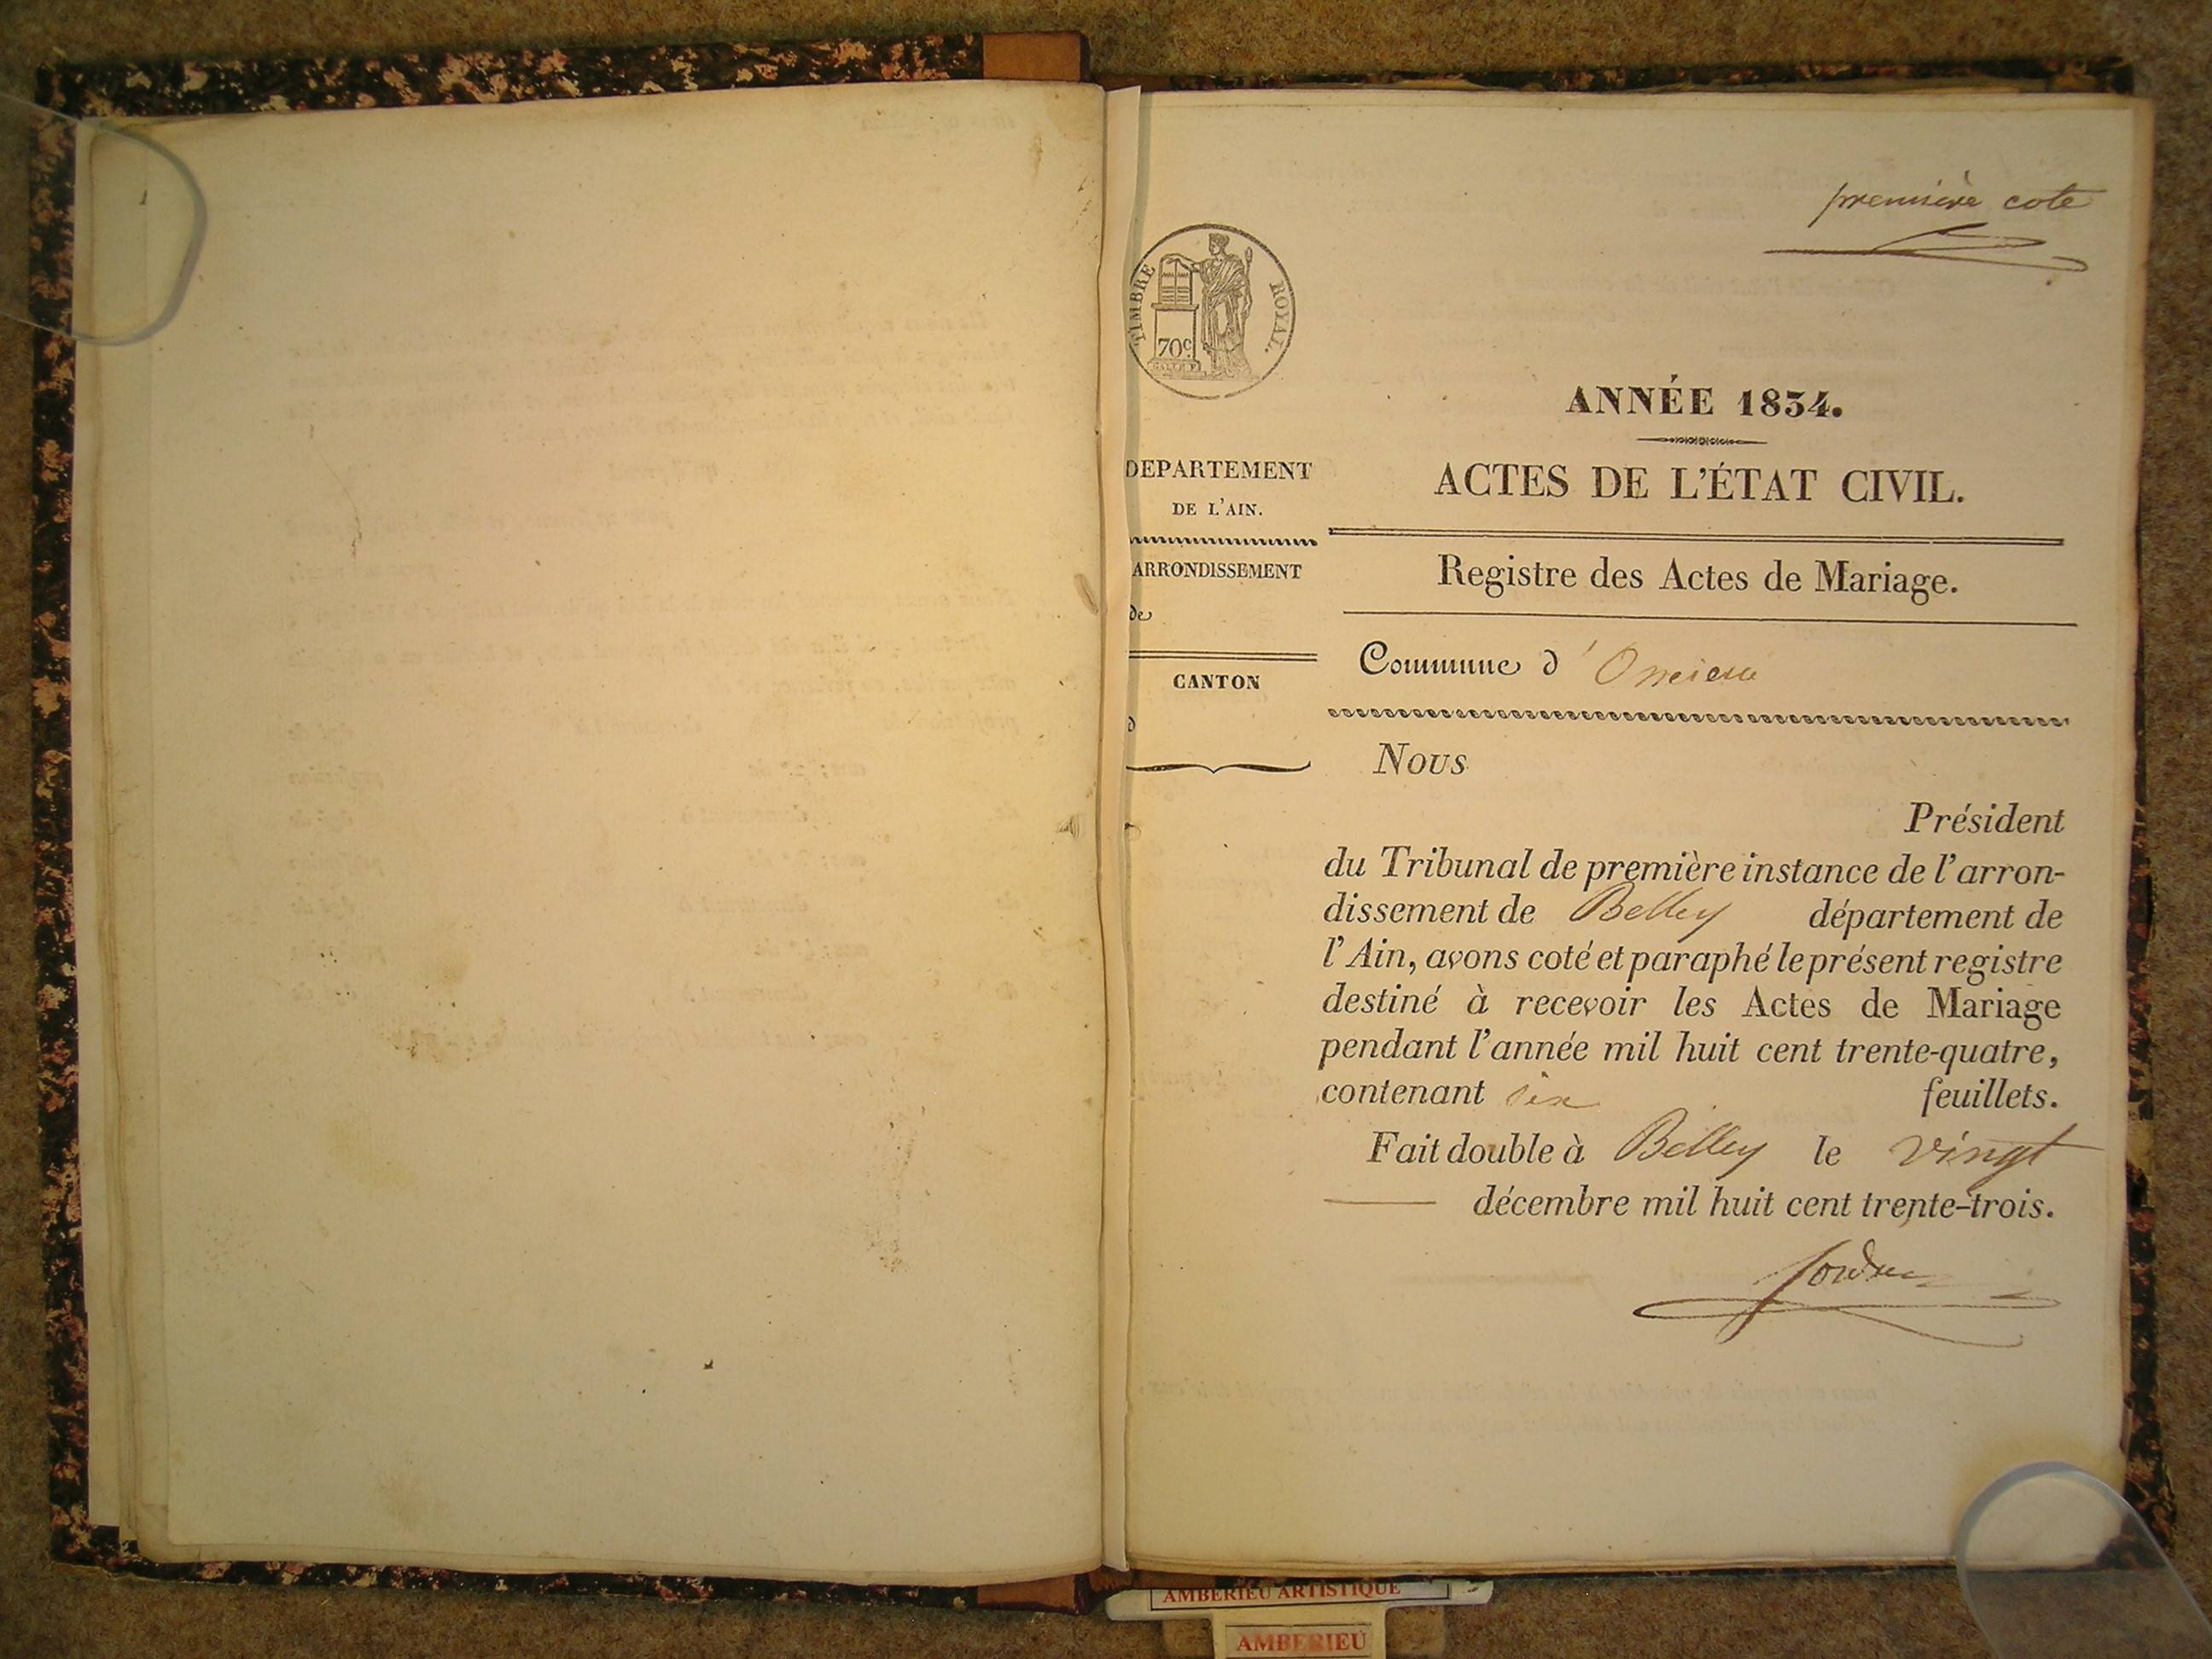 première cote
TIMBRE ROYAL.
70c
ANNÉE 1834.
ACTES DE L'ÉTAT CIVIL.
DEPARTEMENT
DE L'AIN.
ARRONDISSEMENT
de
CANTON
d
Registre des Actes de Mariage.
Commune d'Oncieu
Nous
Président
du Tribunal de première instance de l'arron-
dissement de Belley département de
l'Ain, avons coté et paraphé le présent registre
destiné à recevoir les Actes de Mariage
pendant l'année mil huit cent trente-quatre,
contenant six feuillets.
Fait double à Belley le vingt
décembre mil huit cent trente-trois.
AMBERIEU ARTISTIQUE
AMBERIEU